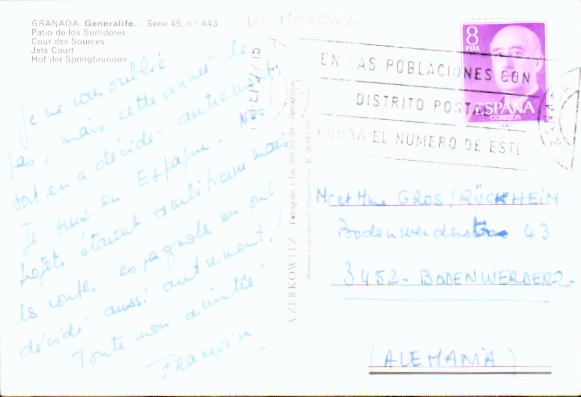 GRANADA. Generalife. - Serie 45, n.º 443
Patio de los Surtidores
Cour des Sources
Jets Court
Hof der Springbrunnen
Je ne vous oublie
pas, mais cette année le
sort en a décidé autrement.
Je suis en Espagne. Nos
projets étaient ambitieux mais
les routes espagnoles en ont
décidé aussi autrement!
Toute mon amitié
Françoise
ZERKOWITZ
Fotógrafo
8
PTAS
ESPAÑA
CORREOS
EN LAS POBLACIONES CON
DISTRITO POSTAL
PONGA EL NUMERO DE ESTE
M et Mme GROS/RÜCKHEIM
43
3452- BODENWERDER 2
(ALEMANIA)